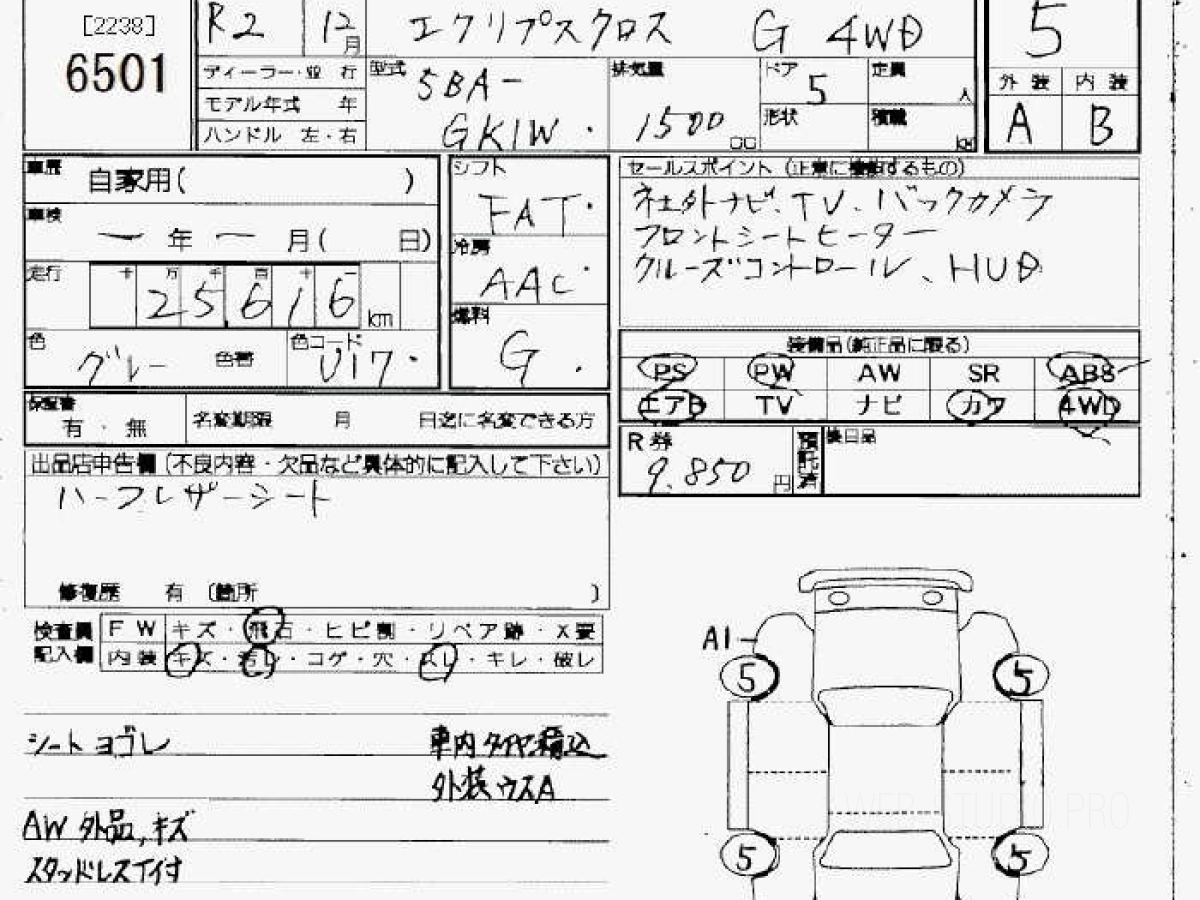 [2238]
6501
R2 12月
ディーラー・並 行
モデル年式 年
ハンドル 左・右
エクリプスクロス G 4WD
型式 5BA-
GK1W
排気量 1500 cc
ドア 5
形状
定員 人
積載 kg
5
外 装 内 装
A B
車歴 自家用( )
車検 ー 年 ー 月( 日)
走行 十 万 千 百 十 一
25,616 km
色 グレー 色替
色コード U17
シフト
FAT
冷房
AAC
燃料
G
セールスポイント (正常に機能するもの)
社外ナビ、TV、バックカメラ
フロントシートヒーター
クルーズコントロール、HUD
装備品(純正品に限る)
PS PW AW SR ABS
エアB TV ナビ カワ 4WD
保証書
有 ・ 無
名変期限 月 日迄に名変できる方
R券
9,850 円
預託済
後日品
出品店申告欄 (不良内容・欠品など具体的に記入して下さい)
ハーフレザーシート
修復歴 有 (箇所 )
検査員
記入欄
F W キズ・飛石・ヒビ割・リペア跡・X要
内 装 キズ・汚レ・コゲ・穴・スレ・キレ・破レ
シート ヨゴレ
車内 タイヤ積込
外装 ウスA
AW 外品,キズ
スタッドレスT付
A1
5 5
5 5
WEB STUDIO PRO